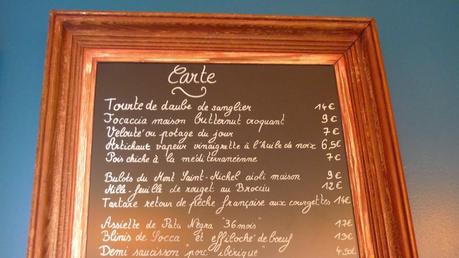 Carte
Tourte de daube de sanglier 14€
Focaccia maison butternut croquant 9€
Velouté ou potage du jour 7€
Artichaut vapeur vinaigrette à l'huile de noix 6,5€
Pois chiche à la méditerranéenne 7€
Bulots du Mont Saint-Michel aioli maison 9€
Mille-feuille de rouget au Brocciu 12€
Tartare retour de pêche française aux courgettes 14€
Assiette de Pata Negra "36 mois" 17€
Blinis de Socca et effiloché de boeuf 13€
Demi saucisson "porc ibérique" 4,50€